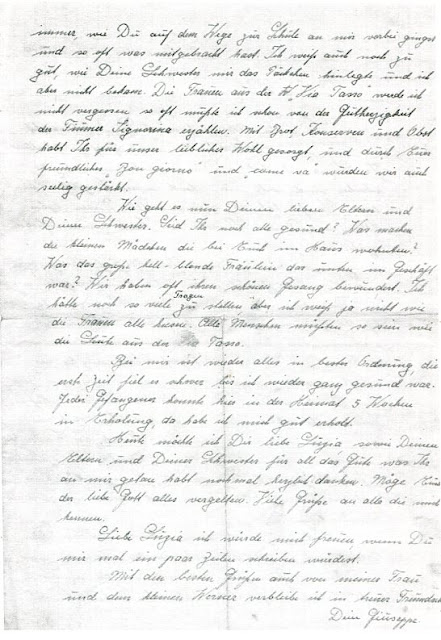 immer, wie Du auf dem Wege zur Schule an mir vorbei gingst
und so oft was mitgebracht hast. Ich weiß auch noch zu
gut, wie Deine Schwester mir das Päckchen hinlegte und ich
aber nicht bekam. Die Frauen aus der Via Tasso werde ich
nicht vergessen so oft mußte ich schon von der Gutherzigkeit
der Signorina erzählen. Mit Brot, Konserven und Obst
habt Ihr für unser leibliches Wohl gesorgt, und durch Euer
freundliches, "Bon giorno" und "come va" wurden wir auch
seelig gestärkt.
Wie geht es nun Deinen lieben Eltern und
Deiner Schwester. Seid Ihr noch alle gesund? Was machen
die kleinen Mädchen die bei Euch im Haus wohnten?
Was das große hell-blonde Fräulein das unten im Geschäft
war? Wir haben oft ihren schönen Gesang bewundert. Ich
hätte noch so viele Fragen zu stellen aber ich weiß ja nicht wie
die Frauen alle heisse. Alle Menschen müßten so sein wie
die Leute aus der Via Tasso.
Bei mir ist wieder alles in bester Ordnung, die
erste Zeit fiel es schwer bis ich wieder ganz gesund war.
Jeder Gefangener konnte hier in der Heimat 5 Wochen
in Erholung, da habe ich mich gut erholt.
Heute möchte ich Dir liebe Luzia sowie Deinen
Eltern und Deiner Schwester für all das Gute was Ihr
an mir getan habt nochmal herzlich danken. Möge Euch
der liebe Gott alles vergelten. Viele Grüße an alle die mich
kennen.
Liebe Luzia ich würde mich freuen wenn Du
mir mal ein paar Zeilen schreiben würdest.
Mit den besten Grüßen auch von meiner Frau
und dem kleinen Werner verbleibe ich in treuer
Dein Giuseppe.